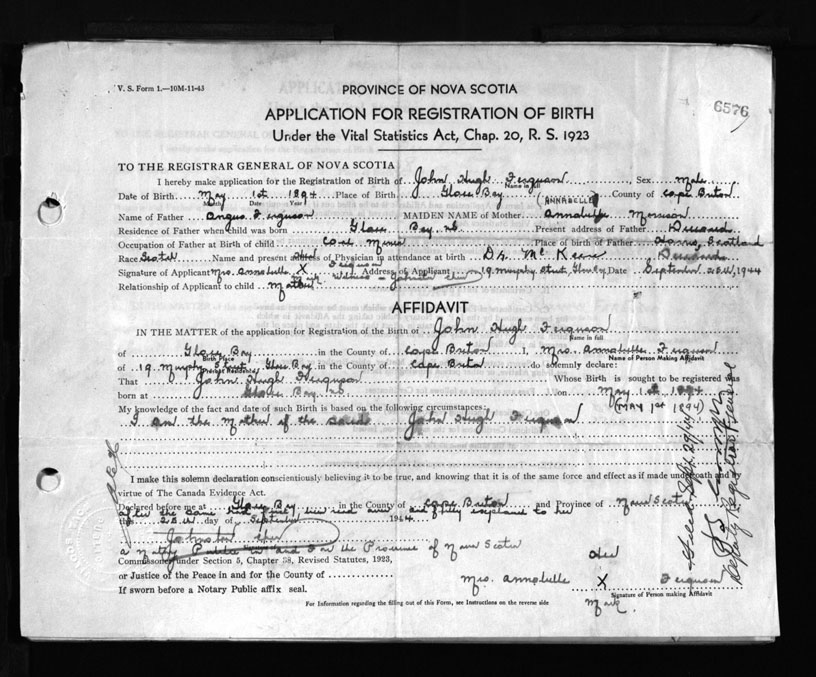 V. S. Form 1.—10M-11-43
PROVINCE OF NOVA SCOTIA
6576
APPLICATION FOR REGISTRATION OF BIRTH
Under the Vital Statistics Act, Chap. 20, R. S. 1923
TO THE REGISTRAR GENERAL OF NOVA SCOTIA
I hereby make application for the Registration of Birth of John Hugh Ferguson Sex Male
Name in full
Date of Birth May 1st 1894 Place of Birth Glace Bay County of Cape Breton
Month Date Year
(ANNABELLE)
Name of Father Angus Ferguson MAIDEN NAME of Mother Annabelle Morrison
Residence of Father when child was born Glace Bay NS Present address of Father Deceased
Occupation of Father at Birth of child Coal Miner Place of Birth of Father Harris, Scotland
Race Scotch Name and present address of Physician in attendance at birth Dr. McKeen Deceased
Signature of Applicant Mrs. Annabelle X Ferguson Address of Applicant 19 Murphy Street, Glace Bay Date September 28th, 1944
Relationship of Applicant to child Mother
AFFIDAVIT
IN THE MATTER of the application for Registration of the Birth of John Hugh Ferguson
Name in full
of Glace Bay in the County of Cape Breton I, Mrs. Annabelle Ferguson
Birth Place Name of Person Making Affidavit
of 19 Murphy Street Glace Bay in the County of Cape Breton do solemnly declare:
Present Residence
That John Hugh Ferguson Whose Birth is sought to be registered was
born at Glace Bay NS on May 1st 1894
(MAY 1st 1894)
My knowledge of the fact and date of such Birth is based on the following circumstances:
I am the mother of the said John Hugh Ferguson
I make this solemn declaration conscientiously believing it to be true, and knowing that it is of the same force and effect as if made under oath and by
virtue of The Canada Evidence Act.
Declared before me at Glace Bay in the County of Cape Breton and Province of Nova Scotia
after the same had first been read over and fully explained to her
this 28th day of September 1944
a Notary Public in and for the Province of Nova Scotia
Commissioner under Section 5, Chapter 38, Revised Statutes, 1923,
or Justice of the Peace in and for the County of
Her
Mrs. Annabelle X Ferguson
Mark.
Signature of Person making Affidavit
If sworn before a Notary Public affix seal.
For Information regarding the filling out of this Form, see Instructions on the reverse side
Filed Sept. 29/44
Deputy Registrar General